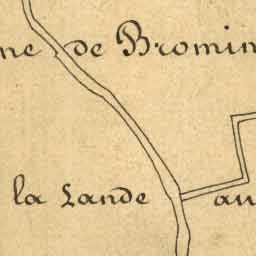 ne de Bromin
la Lande au